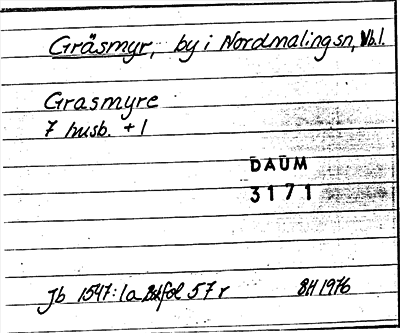 Gräsmyr, by i Nordmalings sn, Vb.l.
Grasmyre
7 husb. + 1
DAUM
3171
Jb 1547:1a fol 57 r BH 1976